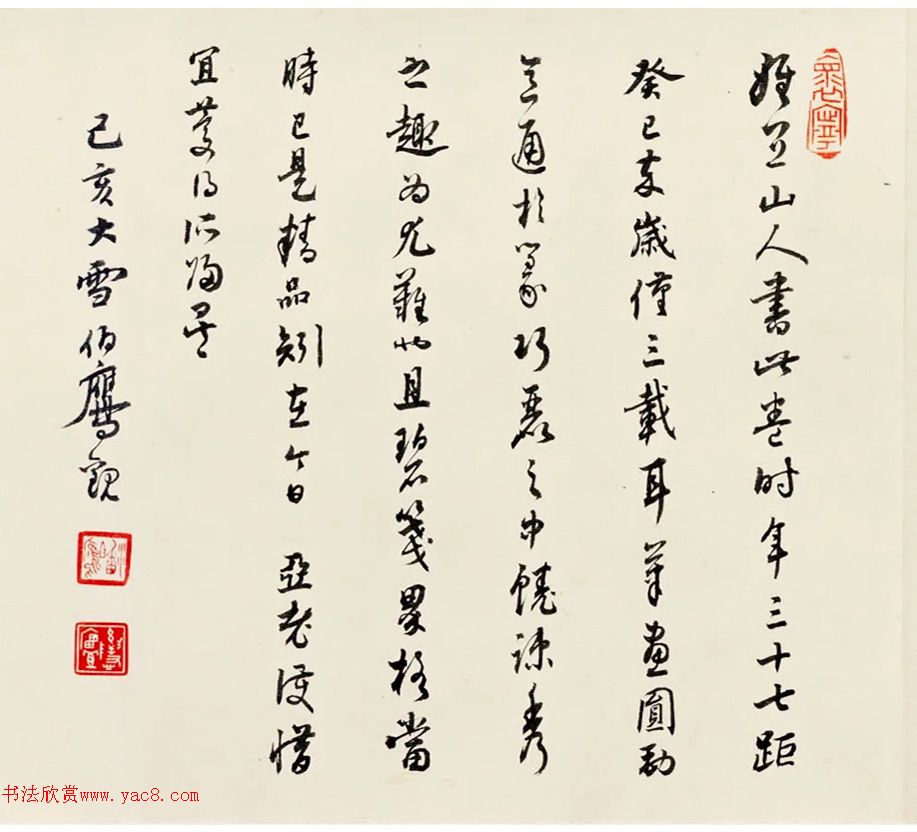 雅宜山人書此卷時年三十七距
癸巳卒歲僅三載耳筆畫圓勁
意通於篆巧麗之中饒疎秀
之趣為尤難也且碧箋界格當
時已是精品矧在今日 亞老護惜
宜慶得所歸
己亥大雪伯鷹觀
书法欣赏www.yac8.com